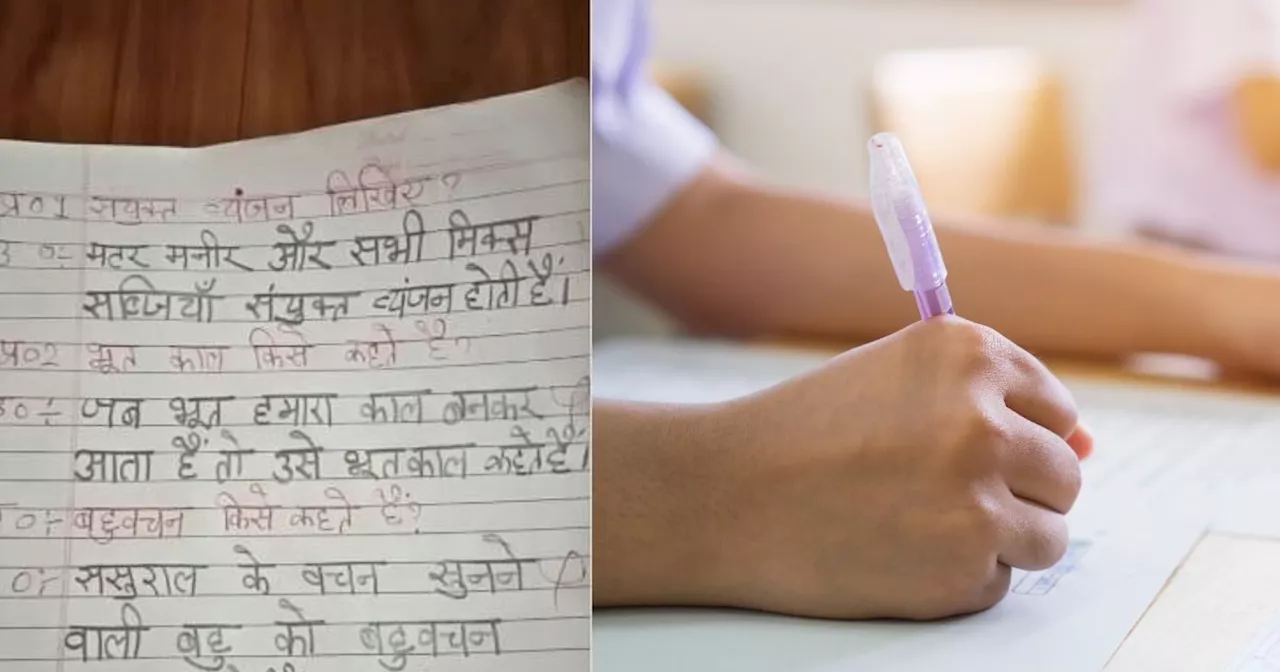 प्र०1 सयुक्त व्यंजन लिखिए?
उ०:- मटर मनीर और सभी मिक्स
सब्जियाँ संयुक्त व्यंजन होती हैं।
प्र०2 भूत काल किसे कहते है?
उ०:- जब भूत हमारा काल बनकर
आता हैं तो उसे भूतकाल कहते हैं।
०:- बहुवचन किसे कहते हैं?
०:- ससुराल के वचन सुनने
वाली बहु को बहुवचन